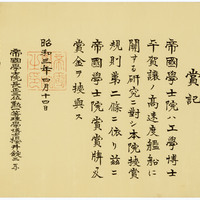 賞記
帝國學士院ハ工學博士
平賀讓ノ高速度艦船ニ
關する研究ニ對シ本院授賞
規則第二條ニ依リ茲ニ
帝國學士院賞賞牌及
賞金ヲ授與ス
昭和三年四月十四日
帝國學士院長正三位勳一等理學博士櫻井錠二